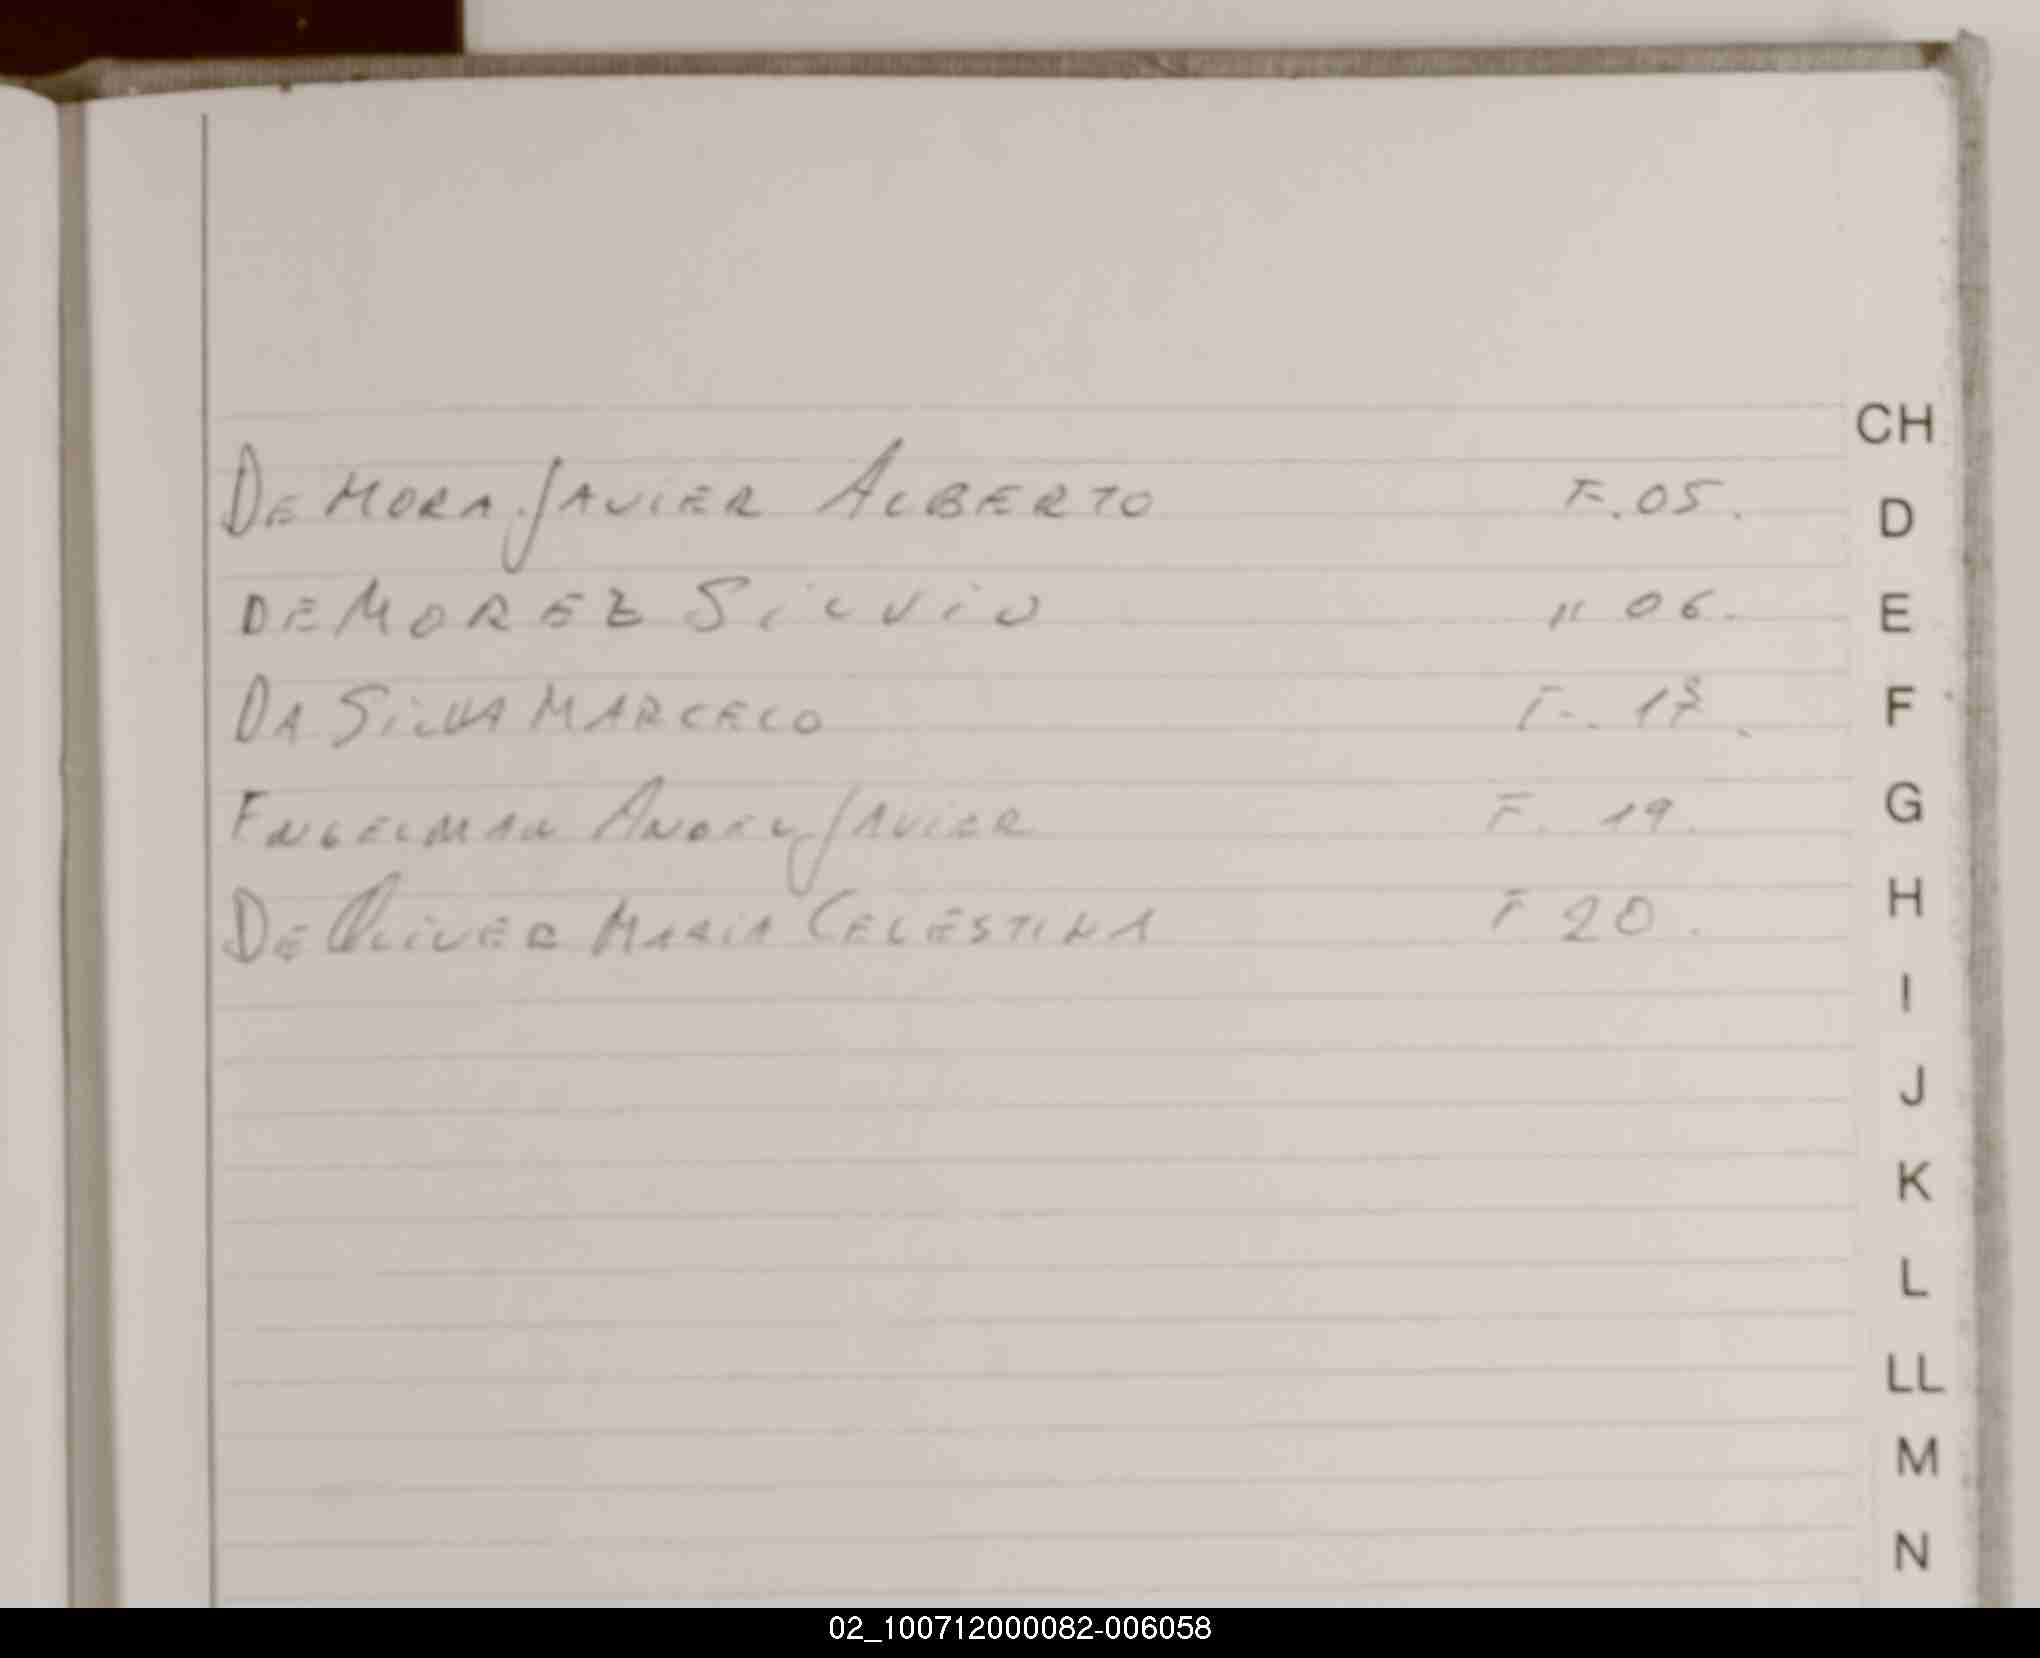 DE MORA JAVIER ALBERTO F. 05.
DE MOREZ SILVIO " 06.
DA SILVA MARCELO F. 17.
ENGELMAN ANGEL JAVIER F. 19.
DE OLIVER MARIA CELESTINA F 20.
CH
D
E
F
G
H
I
J
K
L
LL
M
N
02_100712000082-006058